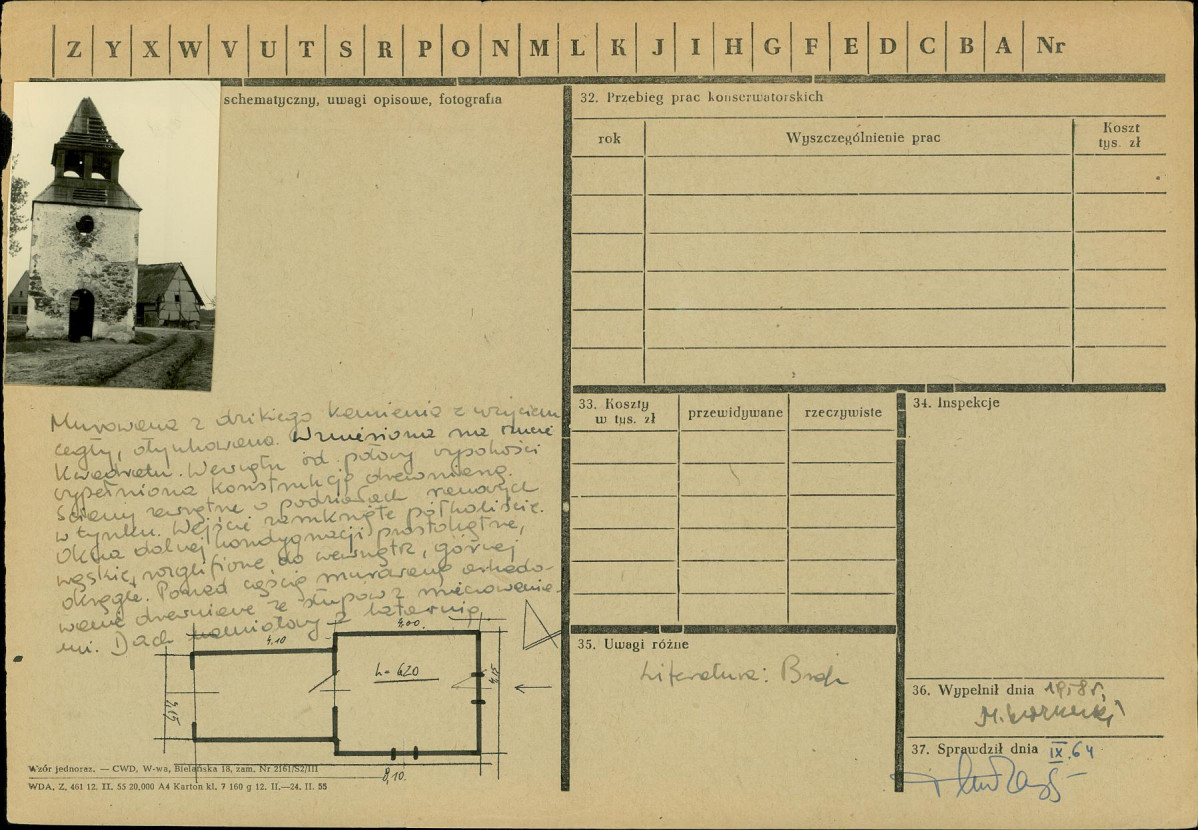 Z Y X W V U T S R P O N M L K J I H G F E D C B A Nr
schematyczny, uwagi opisowe, fotografia
Murowana z dzikiego kamienia z użyciem
cegły, otynkowana. Wzniesiona na rzucie
kwadratu. Wewnątrz od połowy wysokości
wypełniona konstrukcją drewnianą.
Ściany zewnętrzne o podziałach ramowych
w tynku. Wejście zamknięte półkoliście.
Okna dolnej kondygnacji prostokątne,
wąskie, rozglifione do wewnątrz, górnej
okrągłe. Ponad częścią murowaną arkado-
wanie drewniane ze słupów z mieczowania-
mi. Dach namiotowy z latarnią
4.10
4.00
h = 620
8,10.
Wzór jednoraz. — CWD, W-wa, Bielańska 18, zam. Nr 2161/S2/III
WDA. Z. 461 12. II. 55 20,000 A4 Karton kl. 7 160 g 12. II.—24. II. 55
32. Przebieg prac konserwatorskich
rok Wyszczególnienie prac Koszt tys. zł
33. Koszty w tys. zł przewidywane rzeczywiste
34. Inspekcje
35. Uwagi różne
Literatura: Brak
36. Wypełnił dnia 1958 r.
37. Sprawdził dnia IX.64